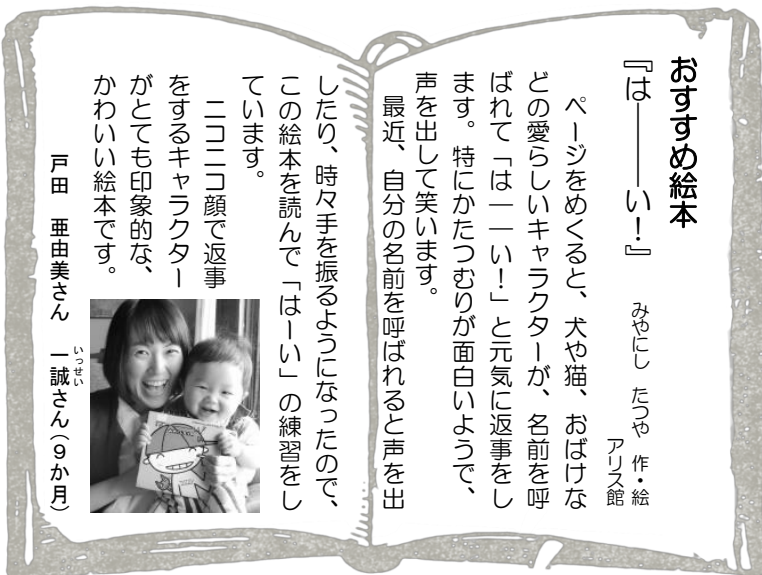 おすすめ絵本
『は――い！』　みやにし　たつや　作・絵
アリス館
ページをめくると、犬や猫、おばけな
どの愛らしいキャラクターが、名前を呼
ばれて「は――い！」と元気に返事をし
ます。特にかたつむりが面白いようで、
声を出して笑います。
最近、自分の名前を呼ばれると声を出
したり、時々手を振るようになったので、
この絵本を読んで「はーい」の練習をし
ています。
ニコニコ顔で返事
をするキャラクター
がとても印象的な、
かわいい絵本です。
戸田　亜由美さん　一誠さん（９か月）
いっせい